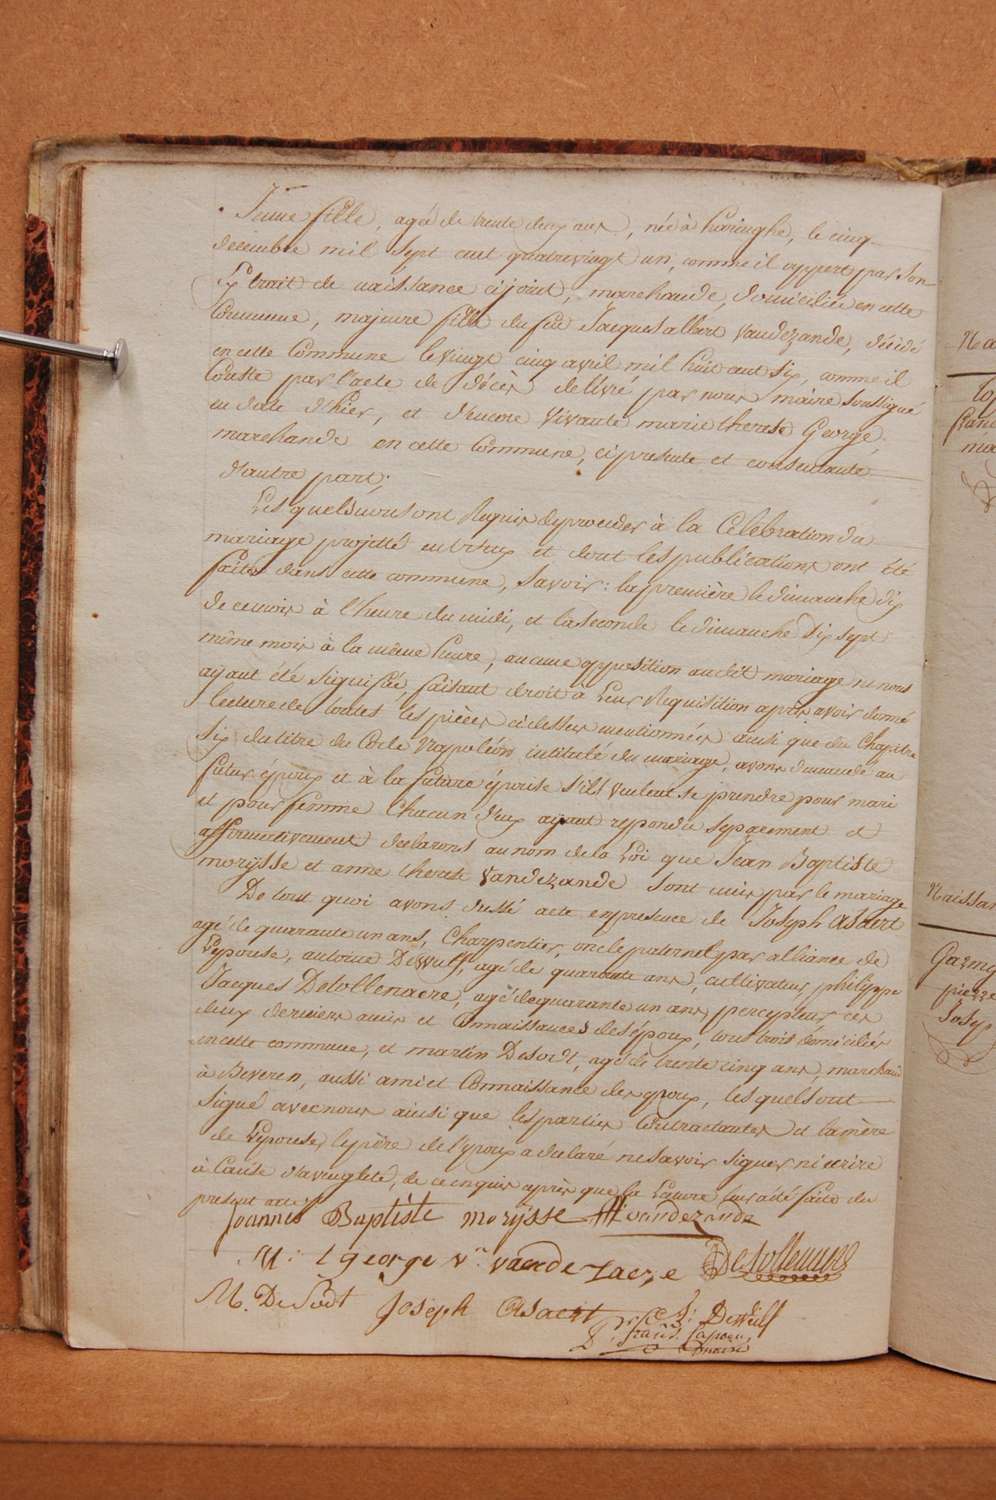 Jeune fille, agée de trente deux ans, née à haringhe, le cinq
decembre mil sept cent quatrevingt un, comme il appert par son
Extrait de naissance cijoint, marchande, domiciliée en cette
Commune, majeure fille du feu Jacques albert Vandezande, décédé
en cette Commune le vingt cinq avril mil huit cent six, comme il
Conste par l'acte de décès delivré par nous maire soussigné
en date d'hier, et d'encore vivante marie therese George,
marchande en cette Commune, ci presente et consentante
d'autre part;
Les quels nous ont Requis de proceder à la Célébration du
mariage projetté entr'eux et dont les publications ont été
faites dans cette commune, Savoir: la première le dimanche dix
de ce mois à l'heure du midi, et la seconde le dimanche dix sept
même mois à la même heure, aucune opposition audit mariage ne nous
ayant été signifiée, faisant droit à leur Requisition après avoir donné
lecture de toutes les pièces ci dessus mentionnées ainsi que du Chapitre
Six du titre du Code Napoléon intitulé du mariage, avons demandé au
futur époux et à la future épouse s'ils veulent se prendre pour mari
et pour femme Chacun d'eux ayant repondu separement et
affirmativement declarons au nom de la Loi que Jean Baptiste
morÿsse et anne therese Vandezande sont unis par le mariage
De tout quoi avons dressé acte en presence de Joseph Asaert
agé de quarante un ans, Charpentier, oncle paternel par alliance de
l'epouse, antoine Dewulf, agé de quarante ans, cultivateur, philippe
Jacques Detollenaere, agé de quarante un ans, percepteur ces
deux derniers amis et Connaissances de l'époux, tous trois domiciliés
en cette commune, et martin Desodt, agé de trente cinq ans, marchand
à Beveren, aussi ami et Connaissance de l'epoux, les quels ont
Signé avec nous ainsi que les parties Contractantes et la mère
de l'epouse, le père de l'epoux a declaré ne savoir signer ni ecrire
à Cause d'aveugleté, de ce enquis après que la Lecture leur a été faite du
present acte
Joannes Baptiste morÿsse vandezande
M: T george Vᵉ vande zaeze Detollenaere
M. De Sodt Joseph Asaert Dewulf
maire